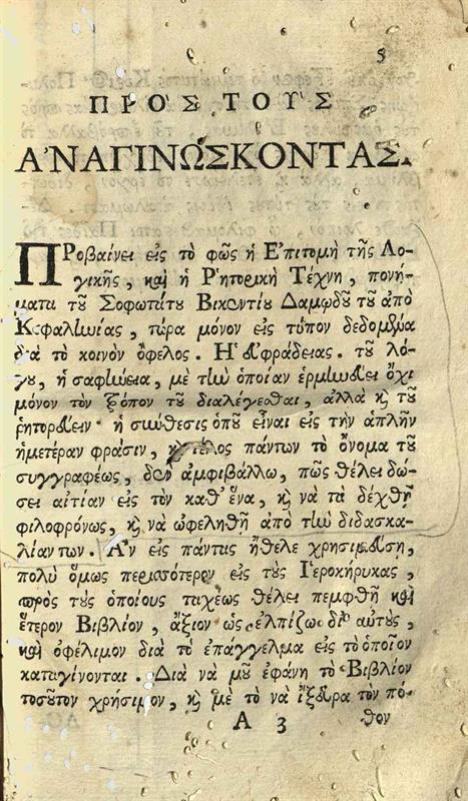 5
ΠΡΟ'Σ ΤΟΥ'Σ
Α'ΝΑΓΙΝΩ'ΣΚΟΝΤΑΣ.
ΠΡοβαίνει εἰς τὸ φῶς ἡ Ε'πιτομὴ τῆς Λο-
γικῆς, καὶ ἡ Ρ'ητορικὴ Τέχνη, πονή-
ματα τοῦ Σοφωτάτου Βικεντίου Δαμωδοῦ τοῦ ἀπὸ
Κεφαλληνίας, τώρα μόνον εἰς τύπον δεδομένα
διὰ τὸ κοινὸν ὄφελος. Η' εὐφράδεια. τοῦ λό-
γου, ἡ σαφήνεια, μὲ τὴν ὁποίαν ἑρμηνεύει ὄχι
μόνον τὸν τρόπον τοῦ διαλέγεσθαι, ἀλλὰ κ̀ τοῦ
ῥητορεύειν· ἡ σύνθεσις ὁποῦ εἶναι εἰς τὴν ἁπλῆν
ἡμετέραν φράσιν, κ̀ τέλος πάντων τὸ ὄνομα τοῦ
συγγραφέως, δὲν ἀμφιβάλλω, πῶς θέλει δώ-
σει αἰτίαν εἰς τὸν καθ' ἕνα, κ̀ νὰ τὰ δέχθῃ
φιλοφρόνως, κ̀ νὰ ὠφεληθῇ ἀπὸ τὴν διδασκα-
λίαν των. Α'ν εἰς πάντας ἤθελε χρησιμεύσῃ,
πολὺ ὅμως περισσότερον εἰς τοὺς Ι'εροκήρυκας,
πρὸς τοὺς ὁποίους ταχέως θέλει πεμφθῆ καὶ
ἕτερον Βιβλίον, ἄξιον ὡς ἐλπίζω δι' αὐτοὺς,
καὶ ὀφέλιμον διὰ τὸ ἐπάγγελμα εἰς τὸ ὁποῖον
καταγίνονται. Διὰ νὰ μοῦ ἐφάνη τὸ Βιβλίον
τοσοῦτον χρήσιμον, κ̀ μὲ τὸ νὰ ἤξευρα τὸν πό-
Α 3 θον